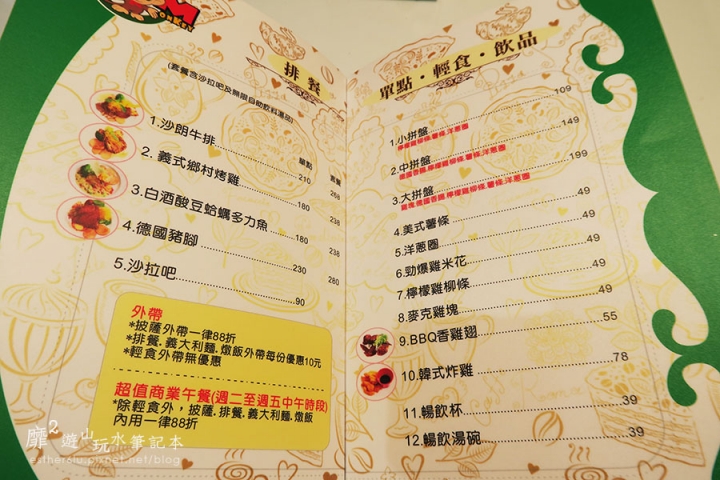 MONKEY
排餐
(套餐含沙拉吧及無限自助飲料湯品)
單點 套餐
1.沙朗牛排 210 268
2. 義式鄉村烤雞 180 238
3.白酒酸豆蛤蠣多力魚 180 238
4.德國豬腳 230 280
5.沙拉吧 90
外帶
*披薩外帶一律88折
*排餐.義大利麵.燉飯外帶每份優惠10元
*輕食外帶無優惠
超值商業午餐(週二至週五中午時段)
*除輕食外，披薩.排餐.義大利麵.燉飯
內用一律88折
單點・輕食・飲品
1.小拼盤 109
檸檬雞柳條.薯條.洋蔥圈
2.中拼盤 149
德國香腸.檸檬雞柳條.薯條.洋蔥圈
3.大拼盤 199
雞塊.德國香腸.檸檬雞柳條.薯條.洋蔥圈
4.美式薯條 49
5.洋蔥圈 49
6.勁爆雞米花 49
7.檸檬雞柳條 49
8.麥克雞塊 49
9.BBQ香雞翅 55
10.韓式炸雞 78
11.暢飲杯 39
12.暢飲湯碗 39
靡2遊山玩水筆記本
estherciu.pixnet.net/blog